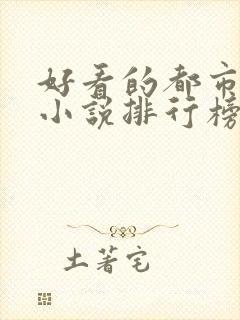 好看的都市
小说排行榜
土著宅